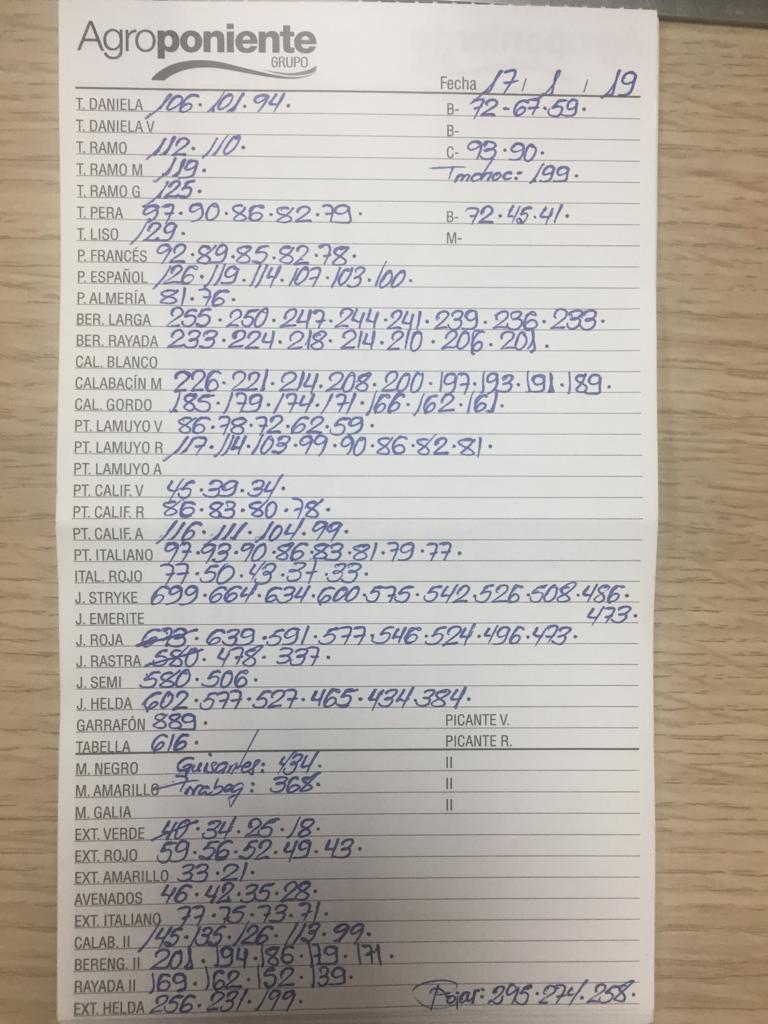 Agroponiente
GRUPO
Fecha 17 / 1 / 19
T. DANIELA 106. 101. 94. B- 72-67-59.
T. DANIELA V B-
T. RAMO 112. 110. C- 93.90.
T. RAMO M 119. Tmchoc: 199.
T. RAMO G 125.
T. PERA 97.90.86.82.79. B- 72.45.41.
T. LISO 129. M-
P. FRANCÉS 92.89.85.82.78.
P. ESPAÑOL 126.119.114.107.103.100.
P. ALMERÍA 81.76.
BER. LARGA 255.250.247.244.241.239.236.233.
BER. RAYADA 233.224.218.214.210.206.201.
CAL. BLANCO
CALABACÍN M 226.221.214.208.200.197.193.191.189.
CAL. GORDO 185.179.174.171.166.162.161.
PT. LAMUYO V 86.78.72.62.59.
PT. LAMUYO R 117.114.103.99.90.86.82.81.
PT. LAMUYO A
PT. CALIF. V 45.39.34.
PT. CALIF. R 86.83.80.78.
PT. CALIF. A 116.111.104.99.
PT. ITALIANO 97.93.90.86.83.81.79.77.
ITAL. ROJO 77.50.43.37.33.
J. STRYKE 699.664.634.600.575.542.526.508.486.
J. EMERITE 473.
J. ROJA 673.639.591.577.546.524.496.473.
J. RASTRA 580.478.337.
J. SEMI 580.506.
J. HELDA 602.577.527.465.434.384.
GARRAFÓN 889. PICANTE V.
TABELLA 616. PICANTE R.
M. NEGRO Guisantes: 434. II
M. AMARILLO 368. II
M. GALIA II
EXT. VERDE 40.34.25.18.
EXT. ROJO 59.56.52.49.43.
EXT. AMARILLO 33.21.
AVENADOS 46.42.35.28.
EXT. ITALIANO 77.75.73.71.
CALAB. II 145.135.126.113.99.
BERENG. II 201.194.186.179.171.
RAYADA II 169.162.152.139.
EXT. HELDA 256.231.199. 295.274.258.